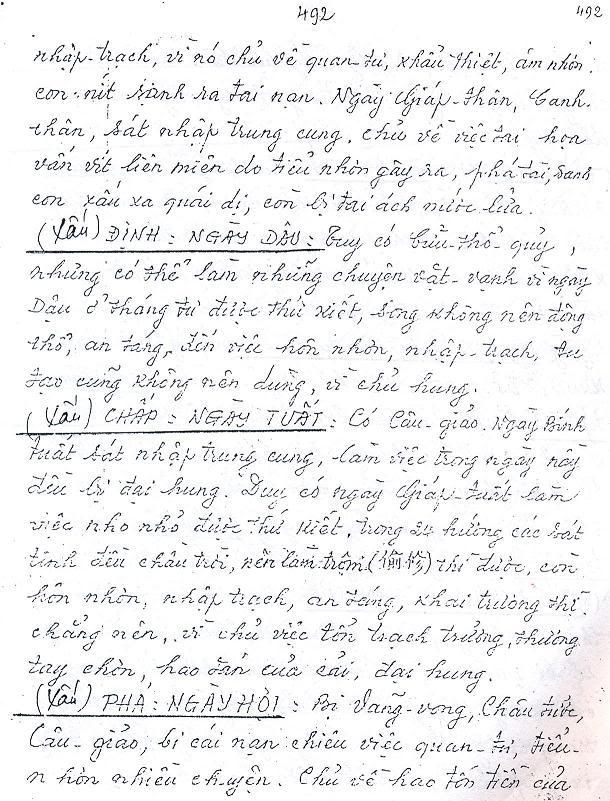 492
492
nhập-trạch, vì nó chủ về quan-tư, khẩu thiệt, âm nhơn
con nít sành ra tai nan. Ngày Giáp-Thân, Canh
thân, sát nhập trung cung. chủ về việc tai họa
vấn vít liên miên do tiểu nhơn gây ra, phá tài, sanh
con xấu xa quái dị, còn bị tai ách nước lửa.
(Xấu) ĐỊNH : NGÀY DẬU : Tuy có Cửu-thổ-quỷ,
nhưng có thể làm những chuyện vặt-vạnh vì ngày
Dậu ở tháng tư được thứ kiết, song không nên động
thổ, an táng, đến việc hôn nhơn, nhập-trạch, tu
tạo cũng không nên dùng, vì chủ hung.
(Xấu) CHẤP : NGÀY TUẤT : Có Câu-giảo. Ngày Bính
tuất sát nhập trung cung, làm việc trong ngày này
đều bị đại hung. Duy có ngày Giáp-tuất làm
việc nho nhỏ được thứ kiết, trong 24 hướng các sát
tinh đều chầu trời, nên làm trộm (偷修) thì được, còn
hôn nhơn, nhập trạch, an táng, khai trương thì
chẳng nên, vì chủ việc tổn trạch trưởng, thương
tay chơn, hao tán của cải, đại hung.
(Xấu) PHÁ : NGÀY HỢI : Bị Vãng-vong, Châu tước,
Câu-giảo, bị cái nạn chiêu việc quan-tư, tiểu-
nhơn nhiều chuyện. Chủ về hao tốn tiền của